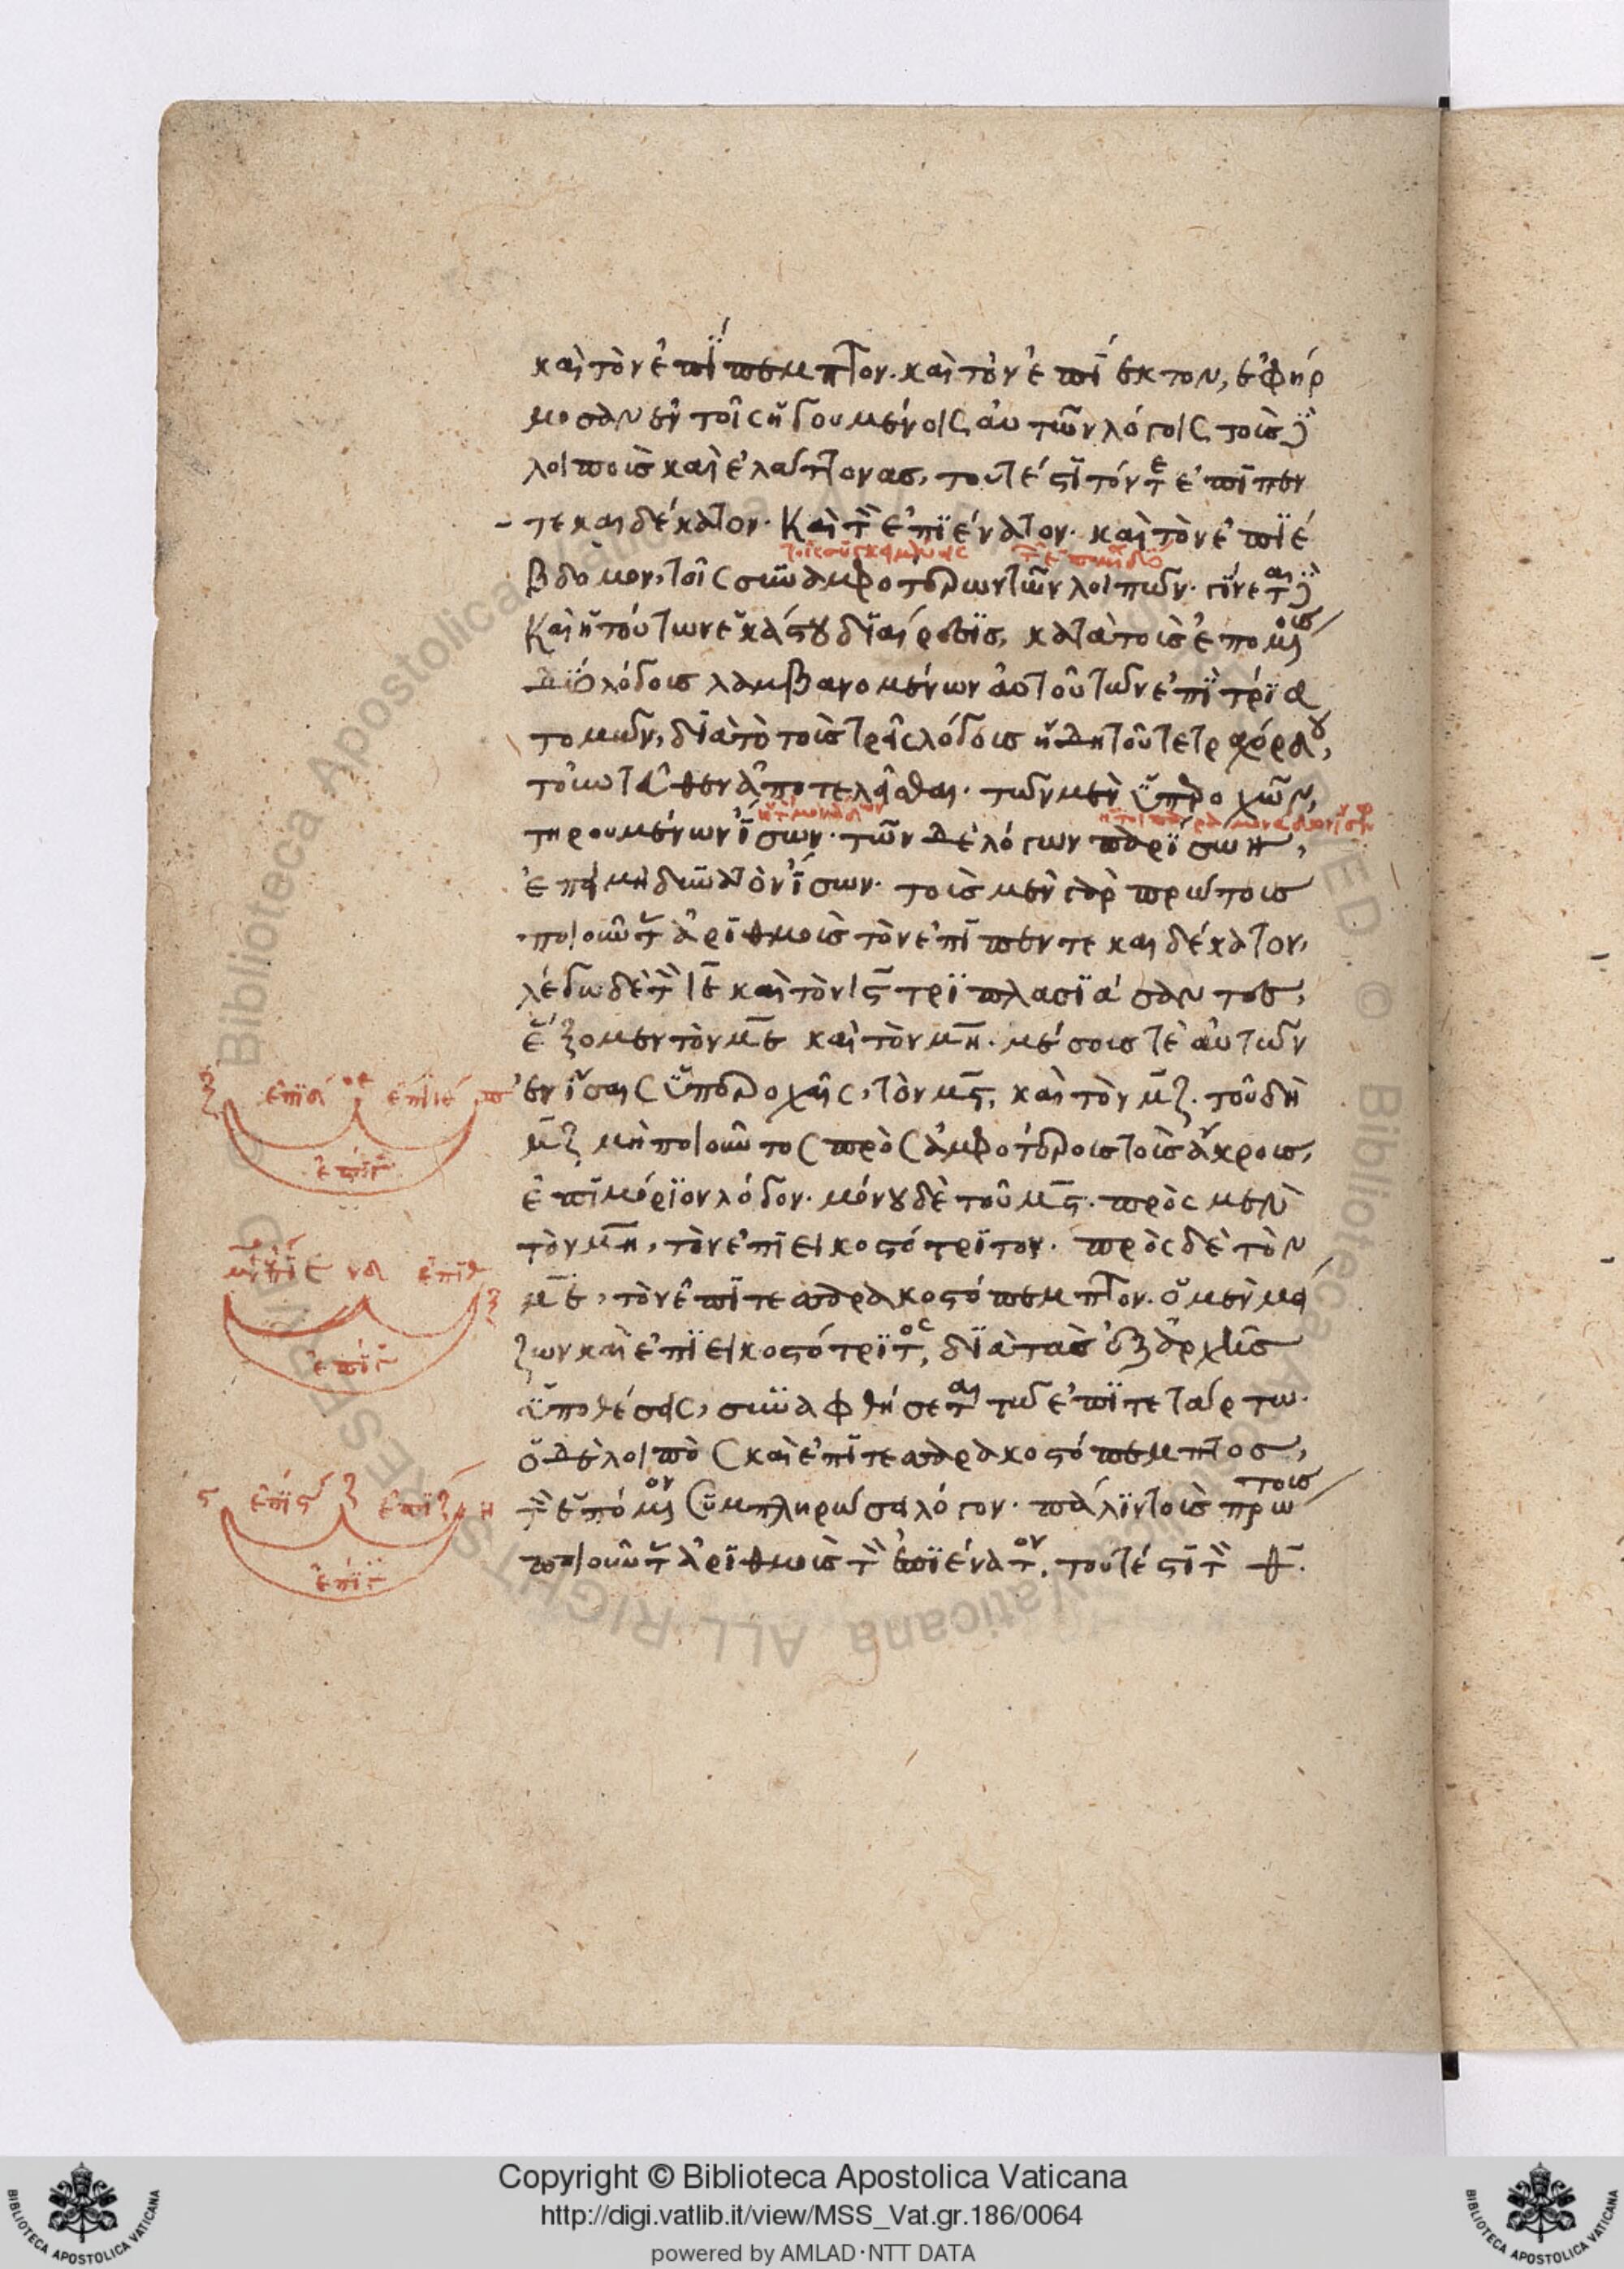 καὶ τὸν ἐπὶ πέμπτον. καὶ τὸν ἐπὶ ἕκτον, ἐφήρ
μοσαν ἐν τοῖς ἡγουμένοις αὐτῶν λόγοις τοὺς
λοιποὺς καὶ ἐλάττονας, τουτέστι τόν τε ἐπὶ πεν
τεκαιδέκατον. καὶ τὸν ἐπὶ ἔνατον. καὶ τὸν ἐπὶ έ
βδομον, τοῖς συναμφοτέρων τῶν λοιπῶν. γίνεται
καὶ ἡ τούτων ἑκάστου διαίρεσις, κατὰ τοὺς ἑπομένους
λόγους λαμβανομένων αὐτοῦ τῶν ἐπὶ τρία
τομῶν, διὰ τὸ τοὺς τρεῖς λόγους ἤδη τοῦ τετραχόρδου,
τοὐντεῦθεν ἀποτελεῖσθαι. τῶν μὲν ὑπεροχῶν,
τηρουμένων ἴσων. τῶν δὲ λόγων παρίσων,
ἐπεὶ μὴ δυνατὸν ἴσων. τοὺς μὲν γὰρ πρώτους
ποιοῦντας ἀριθμοὺς τὸν ἐπὶ πεντεκαιδέκατον,
λέγω δὲ τὸν ιε καὶ τὸν ις τριπλασιάσαντες,
ἕξομεν τὸν με καὶ τὸν μη. μέσους τε αὐτῶν
ἐν ἴσαις ὑπεροχαῖς, τὸν μς, καὶ τὸν μζ. τοῦ δὴ
μζ μὴ ποιοῦντος πρὸς ἀμφοτέρους τοὺς ἄκρους,
ἐπιμόριον λόγον. μόνου δὲ τοῦ μς. πρὸς μὲν
τὸν μη, τὸν ἐπὶ εἰκοστότριτον. πρὸς δὲ τὸν
με, τὸν ἐπὶ τεσσαρακοστόπεμπτον. ὁ μὲν μεί
ζων καὶ ἐπὶ εἰκοστότριτος, διὰ τὰς ἐξ ἀρχῆς
ὑποθέσεις, συναφθήσεται τῷ ἐπὶ τετάρτῳ.
ὁ δὲ λοιπὸς καὶ ἐπὶ τεσσαρακοστόπεμπτος,
τὸν ἑπόμενον συμπληρώσει λόγον. πάλιν τοὺς πρώτους
ποιοῦντας ἀριθμοὺς τὸν ἐπὶ ἔνατον, τουτέστι τὸν θ.
Copyright © Biblioteca Apostolica Vaticana
http://digi.vatlib.it/view/MSS_Vat.gr.186/0064
powered by AMLAD·NTT DATA
BIBLIOTECA APOSTOLICA VATICANA
BIBLIOTECA APOSTOLICA VATICANA